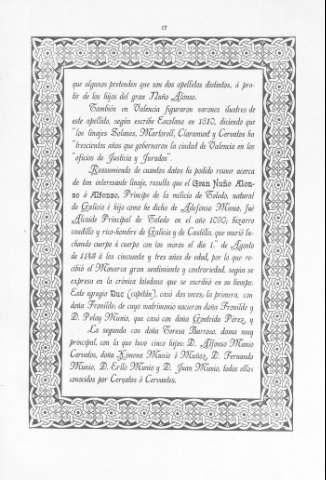 17
que algunos pretenden que son dos apellidos distintos, á par-
tir de los hijos del gran Nuño Alonso.
También en Valencia figuraron varones ilustres de
este apellido, según escribe Escolano en 1610, diciendo que
"los linajes Solanes, Martorell, Claramunt y Cervatos ha
"trescientos años que gobernaron la ciudad de Valencia en los
"oficios de Justicia y Jurados".
Resumiendo de cuantos datos ha podido reunir acerca
de tan interesante linaje, resulta que el Gran Nuño Alon-
so ó Alfonso, Príncipe de la milicia de Toledo, natural
de Galicia é hijo como he dicho de Aldefonso Munio, fué
Alcaide Principal de Toledo en el año 1090; bizarro
caudillo y rico-hombre de Galicia y de Castilla, que murió lu-
chando cuerpo á cuerpo con los moros el día 1.º de Agosto
de 1143 á los cincuenta y tres años de edad, por lo que re-
cibió el Monarca gran sentimiento y contrariedad, según se
expresa en la crónica toledana que se escribió en su tiempo.
Este egregio Duc (capitán), casó dos veces: la primera, con
doña Fronilde; de cuyo matrimonio nacieron doña Fronilde y
D. Pelay Munio, que casó con doña Gontrida Pérez, y
La segunda con doña Teresa Barroso, dama muy
principal, con la que tuvo cinco hijos: D. Alfonso Munio
Cervatos, doña Ximena Munio ó Muñoz, D. Fernando
Munio, D. Ello Munio y D. Juan Munio, todos ellos
conocidos por Cervatos ó Cervantes.